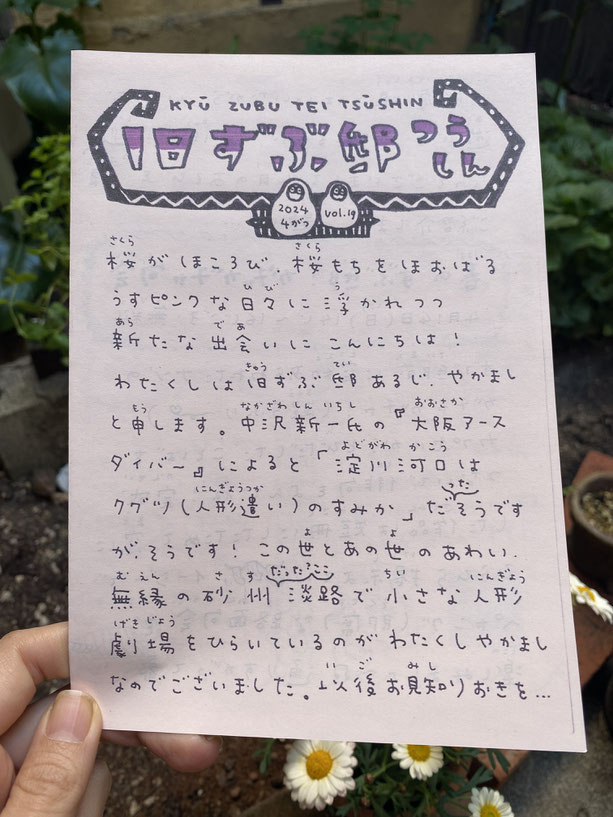 KYŪ ZUBU TEI TSŪSHIN
旧ずぶ邸つうしん
2024 4がつ vol.19
桜がほころび、桜もちをほおばる
うすピンクな日々に浮かれつつ
新たな出会いにこんにちは！
わたくしは旧ずぶ邸あるじ、やかまし
と申します。中沢新一氏の『大阪アース
ダイバー』によると「淀川河口は
クグツ(人形遣い)のすみか」だそうです
が、そうです！この世とあの世のあわい、
無縁の砂州淡路で小さな人形
劇場をひらいているのがわたくしやかまし
なのでございました。以後お見知りおきを…